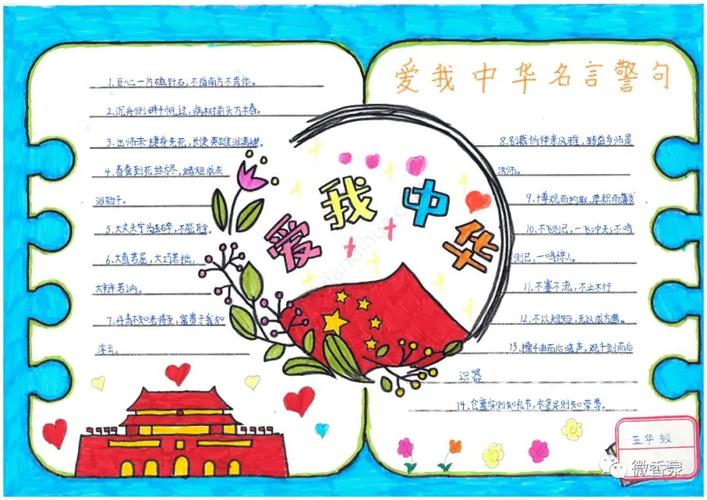 1.臣心一片磁针石,不指南方不肯休。
2.沉舟侧畔千帆过,病树前头万木春。
3.出师未捷身先死,长使英雄泪满襟。
4.春蚕到死丝方尽,蜡炬成灰
泪始干。
5.大丈夫宁为玉碎,不能瓦全。
6.大直若屈,大巧若拙,
大辩若讷。
7.丹青不知老将至,富贵于我如
浮云。
爱我中华
爱我中华名言警句
8.别裁伪体亲风雅,转益多师是
汝师。
9.博观而约取,厚积而薄发
10.不飞则已,一飞冲天;不鸣
则已,一鸣惊人。
11.不塞不流,不止不行
12.不以规矩,无以成方圆。
13.操千曲而后晓声,观千剑而后
识器
14.仓廪实则知礼节,衣食足则知荣辱。
五年级
微香泉